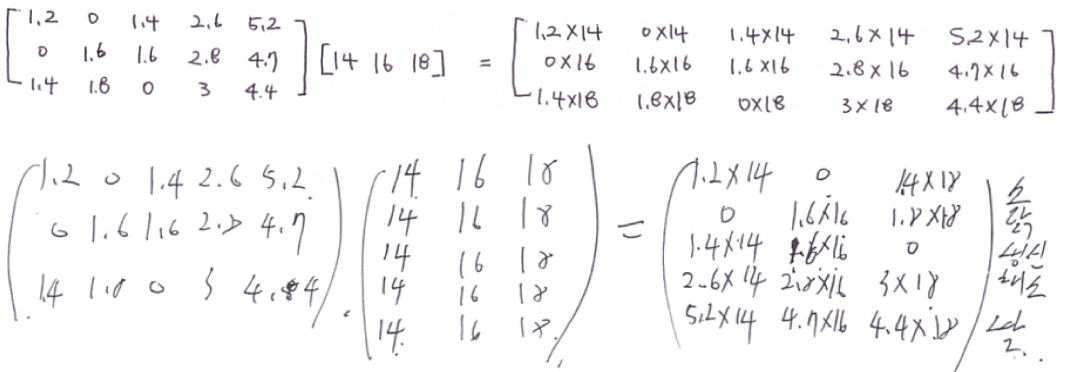 [1.2 0 1.4 2.6 5.2
0 1.6 1.6 2.8 4.7
1.4 1.8 0 3 4.4] [14 16 18] = [1.2×14 0×14 1.4×14 2.6×14 5.2×14
0×16 1.6×16 1.6×16 2.8×16 4.7×16
1.4×18 1.8×18 0×18 3×18 4.4×18]
(1.2 0 1.4 2.6 5.2
0 1.6 1.6 2.8 4.7
1.4 1.8 0 3 4.4) · (14 16 18
14 16 18
14 16 18
14 16 18
14 16 18) = (1.2×14 0 1.4×18
0 1.6×16 1.8×18
1.4×14 1.6×16 0
2.6×14 2.8×16 3×18
5.2×14 4.7×16 4.4×18)